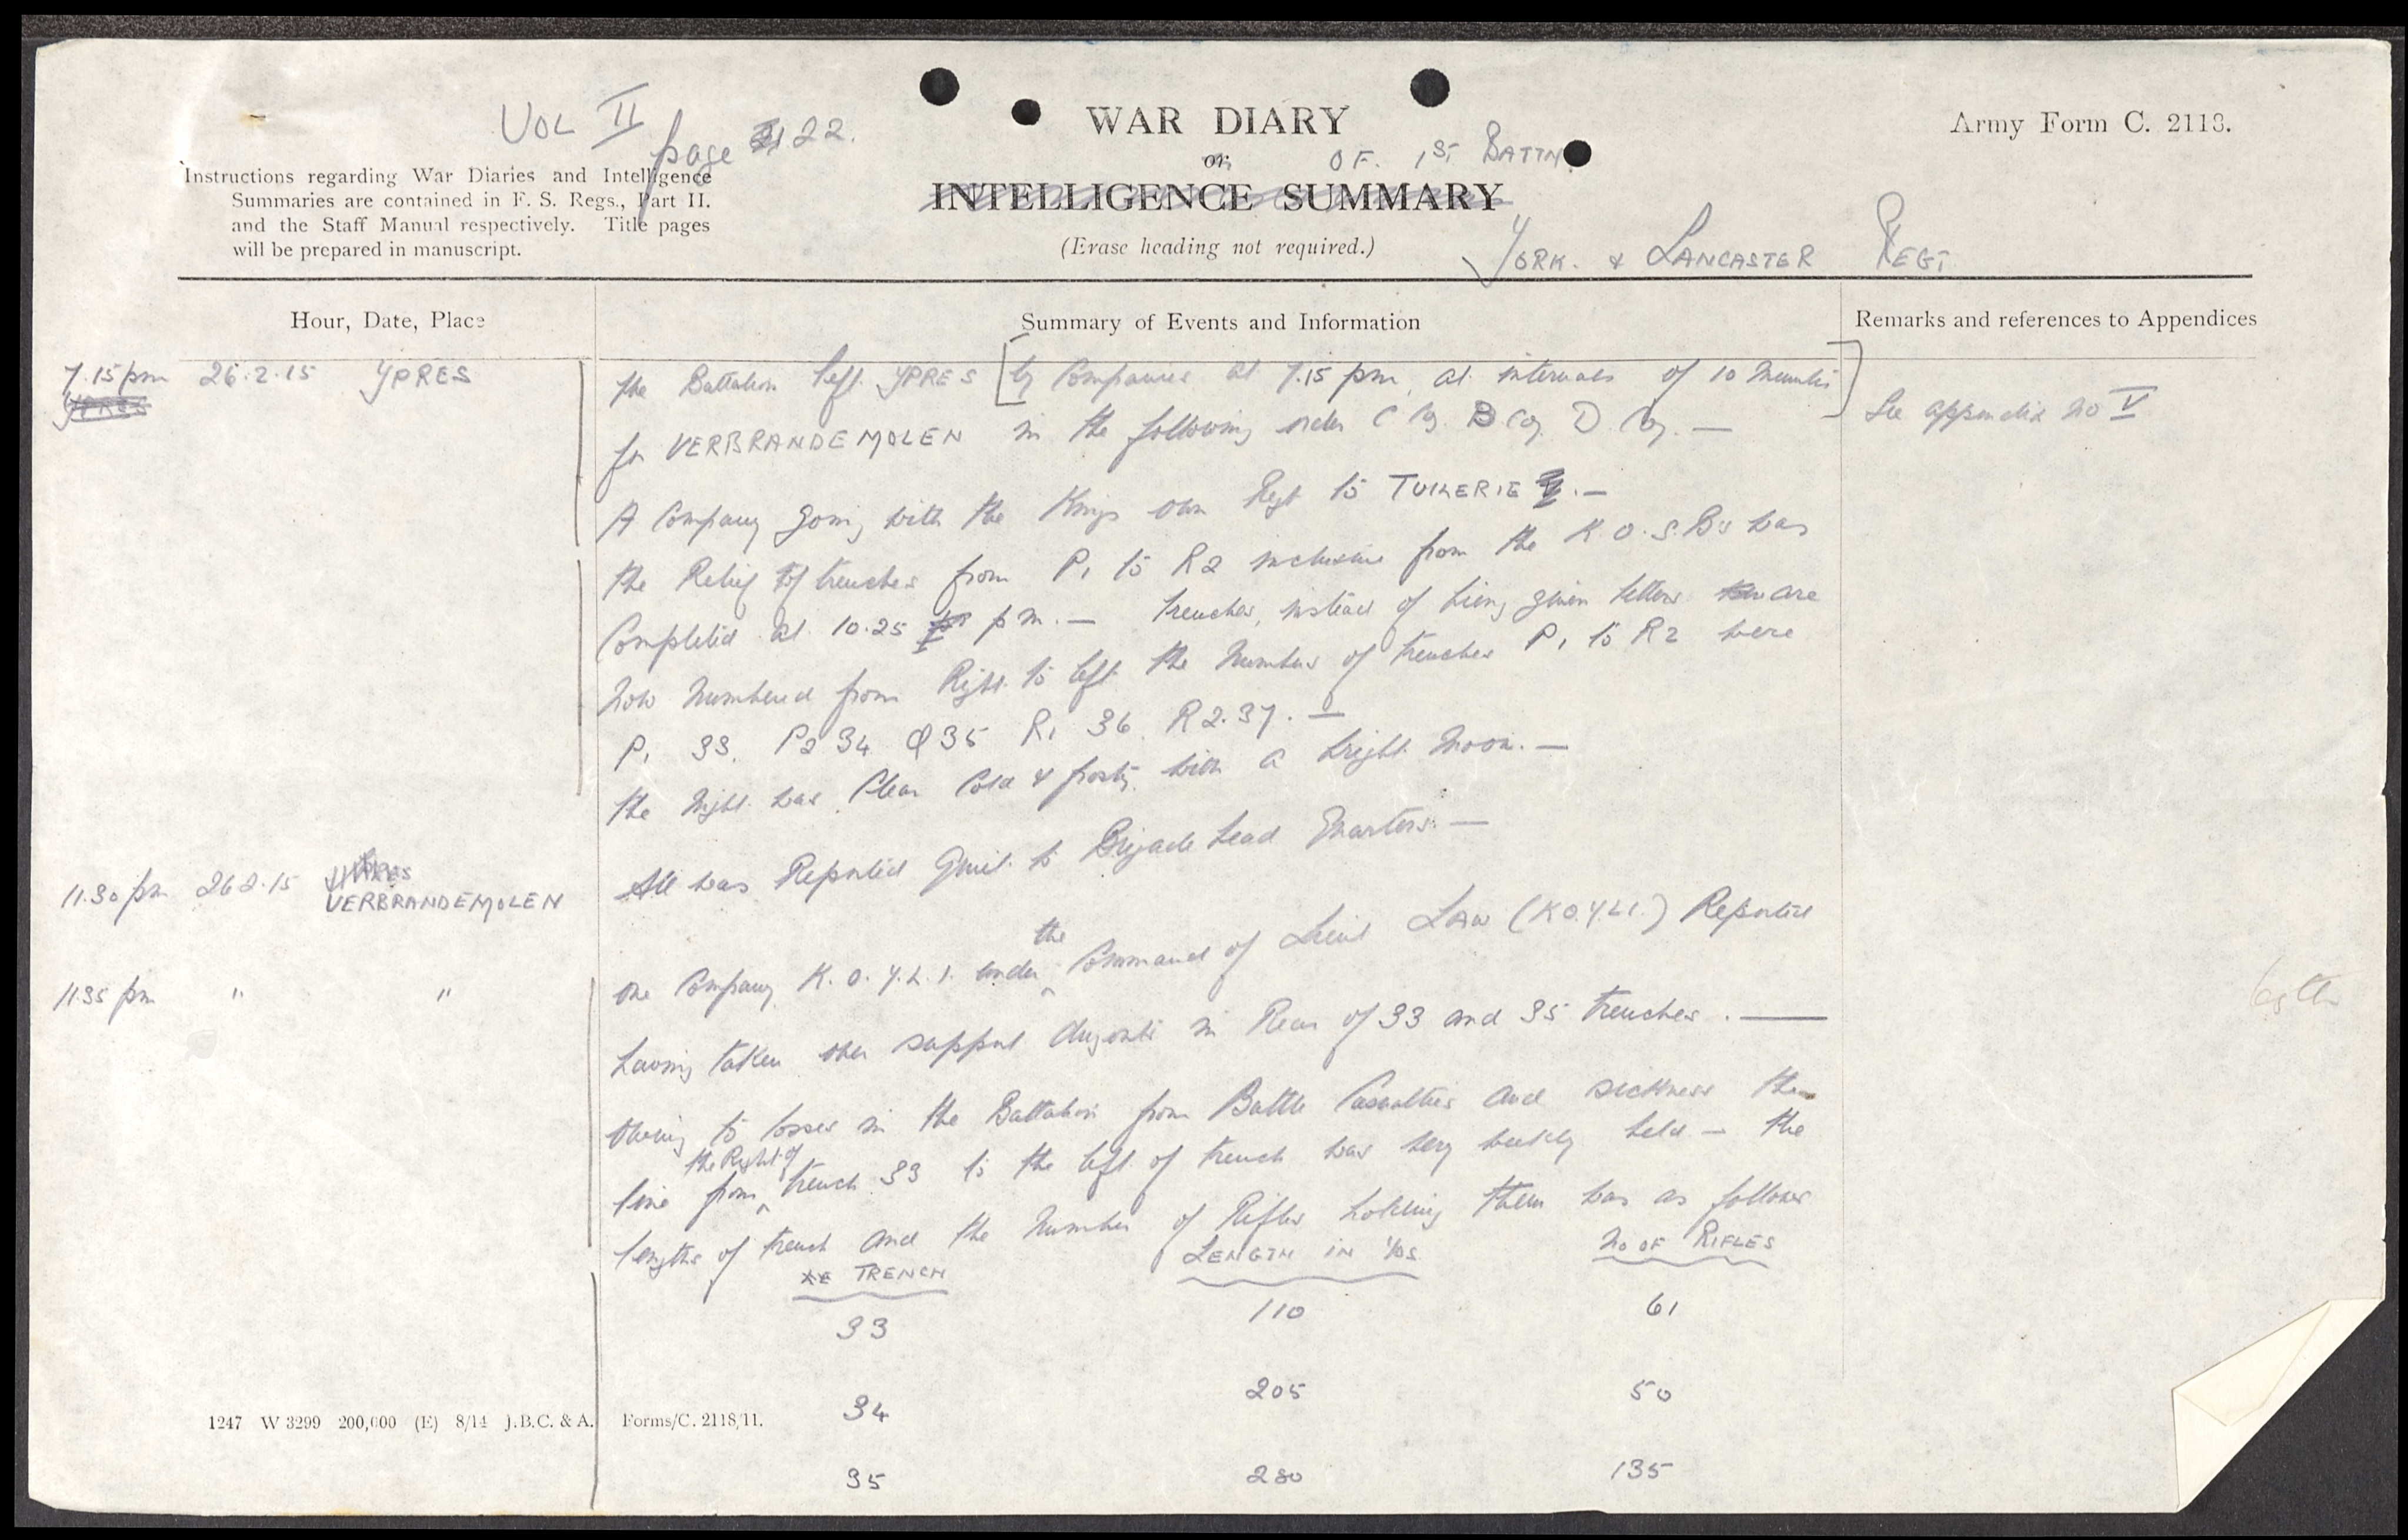 VOL II page 22.
WAR DIARY
Army Form C. 2118.
or
OF. 1ST BATTN
INTELLIGENCE SUMMARY
(Erase heading not required.)
YORK. & LANCASTER REGT
Instructions regarding War Diaries and Intelligence
Summaries are contained in F. S. Regs., Part II.
and the Staff Manual respectively. Title pages
will be prepared in manuscript.
Hour, Date, Place
Summary of Events and Information
Remarks and references to Appendices
7.15 pm 26.2.15 YPRES
YPRES
the Battalion left YPRES [by Companies at 7.15 pm, at intervals of 10 Minutes]
See appendix no V
for VERBRANDEMOLEN in the following order C Coy. B Coy. D. Coy. —
A Company going with the Kings own Regt to TUILERIE . —
the Relief of trenches from P1 to R2 inclusive from the K.O.S.B's was
Completed at 10.25 pm. — trenches, instead of being given letters are
now numbered from Right to left the numbers of trenches P1 to R2 were
P1 33. P2 34 Q35 R1 36. R2.37. —
the night was Clear Cold & frosty with a bright Moon. —
11.30 pm 26 2.15 YPRES
VERBRANDEMOLEN
All was Reported Quiet to Brigade Head Quarters. —
11.35 pm " "
one Company K.O.Y.L.I. under the Command of Lieut LAW (K.O.Y.L.I.) Reported
having taken over support dugouts in Rear of 33 and 35 trenches. —
Owing to losses in the Battalion from Battle Casualties and sickness the
line from the Right of trench 33 to the left of trench was very weakly held — the
lengths of trench and the Number of Rifles holding them was as follows
TRENCH LENGTH IN YDS NO OF RIFLES
33 110 61
34 205 50
35 280 135
1247 W 3299 200,000 (E) 8/14 J.B.C. & A. Forms/C. 2118/11.